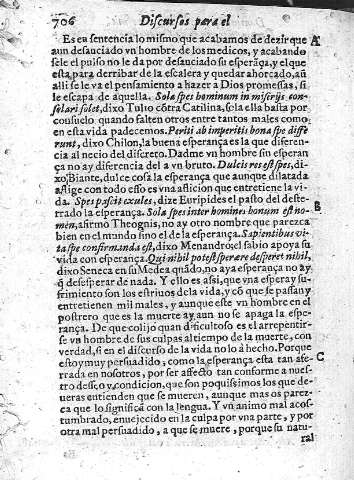 706 Discursos para el
Es en sentencia lo mismo que acabamos de dezir que A
aun desauciado vn hombre de los medicos, y acabando
sele el pulso no le da por desauciado su esperãça, y el que
esta, para derribar de la escalera y quedar ahorcado, aũ
alli se le va el pensamiento a hazer a Dios promessas, si
le escapa de aquella. Sola spes hominum in miserijs con-
solari solet, dixo Tulio cõtra Catilina, sola ella basta por
consuelo quando falten otros entre tantos males como
en esta vida padecemos. Periti ab imperitis bona spe diffe
runt, dixo Chilon, la buena esperança es la que diferen-
cia al necio del discreto. Dadme vn hombre sin esperan
ça no ay diferencia del a vn bruto. Dulcis res est spes, di-
xo, Biante, dulce cosa la esperança que aunque dilatada
aflige con todo esso es vna aflicion que entretiene la vi-
da. Spes pascit exules, dize Euripides el pasto del deste-
rrado la esperança. Sola spes inter homines bonum est no- B
men, afirmò Theognis, no ay otro nombre que parezca
bien en el mundo sino el de la esperança. Sapientibus vi-
ta spe confirmanda est, dixo Menandro, el sabio apoya su
vida con esperança. Qui nihil potest sperare desperet nihil,
dixo Seneca en su Medea quãdo, no aya esperança no ay
q̃ desesperar de nada. Y ello es assi, que vna espera y su-
frimiento son los estriuos de la vida, y cõ que se passan y
entretienen mil males, y aunque este vn hombre en el
postrero que es la muerte ay aun no se apaga la espe-
rança. De que colijo quan dificultoso es el arrepentir-
se vn hombre de sus culpas al tiempo de la muerte, con
verdad, si en el discurso de la vida no lo à hecho. Porque
estoy muy persuadido, como la esperança esta tan afe- C
rrada en nosotros, por ser affecto tan conforme a nues-
tro desseo y condicion, que son poquissimos los que de-
ueras entienden que se mueren, aunque mas os parez-
ca que lo significã con la lengua. Y vn animo mal acos-
tumbrado, enuejecido en la culpa por vna parte, y por
otra mal persuadido, a que se muere, porque su natu-
ral